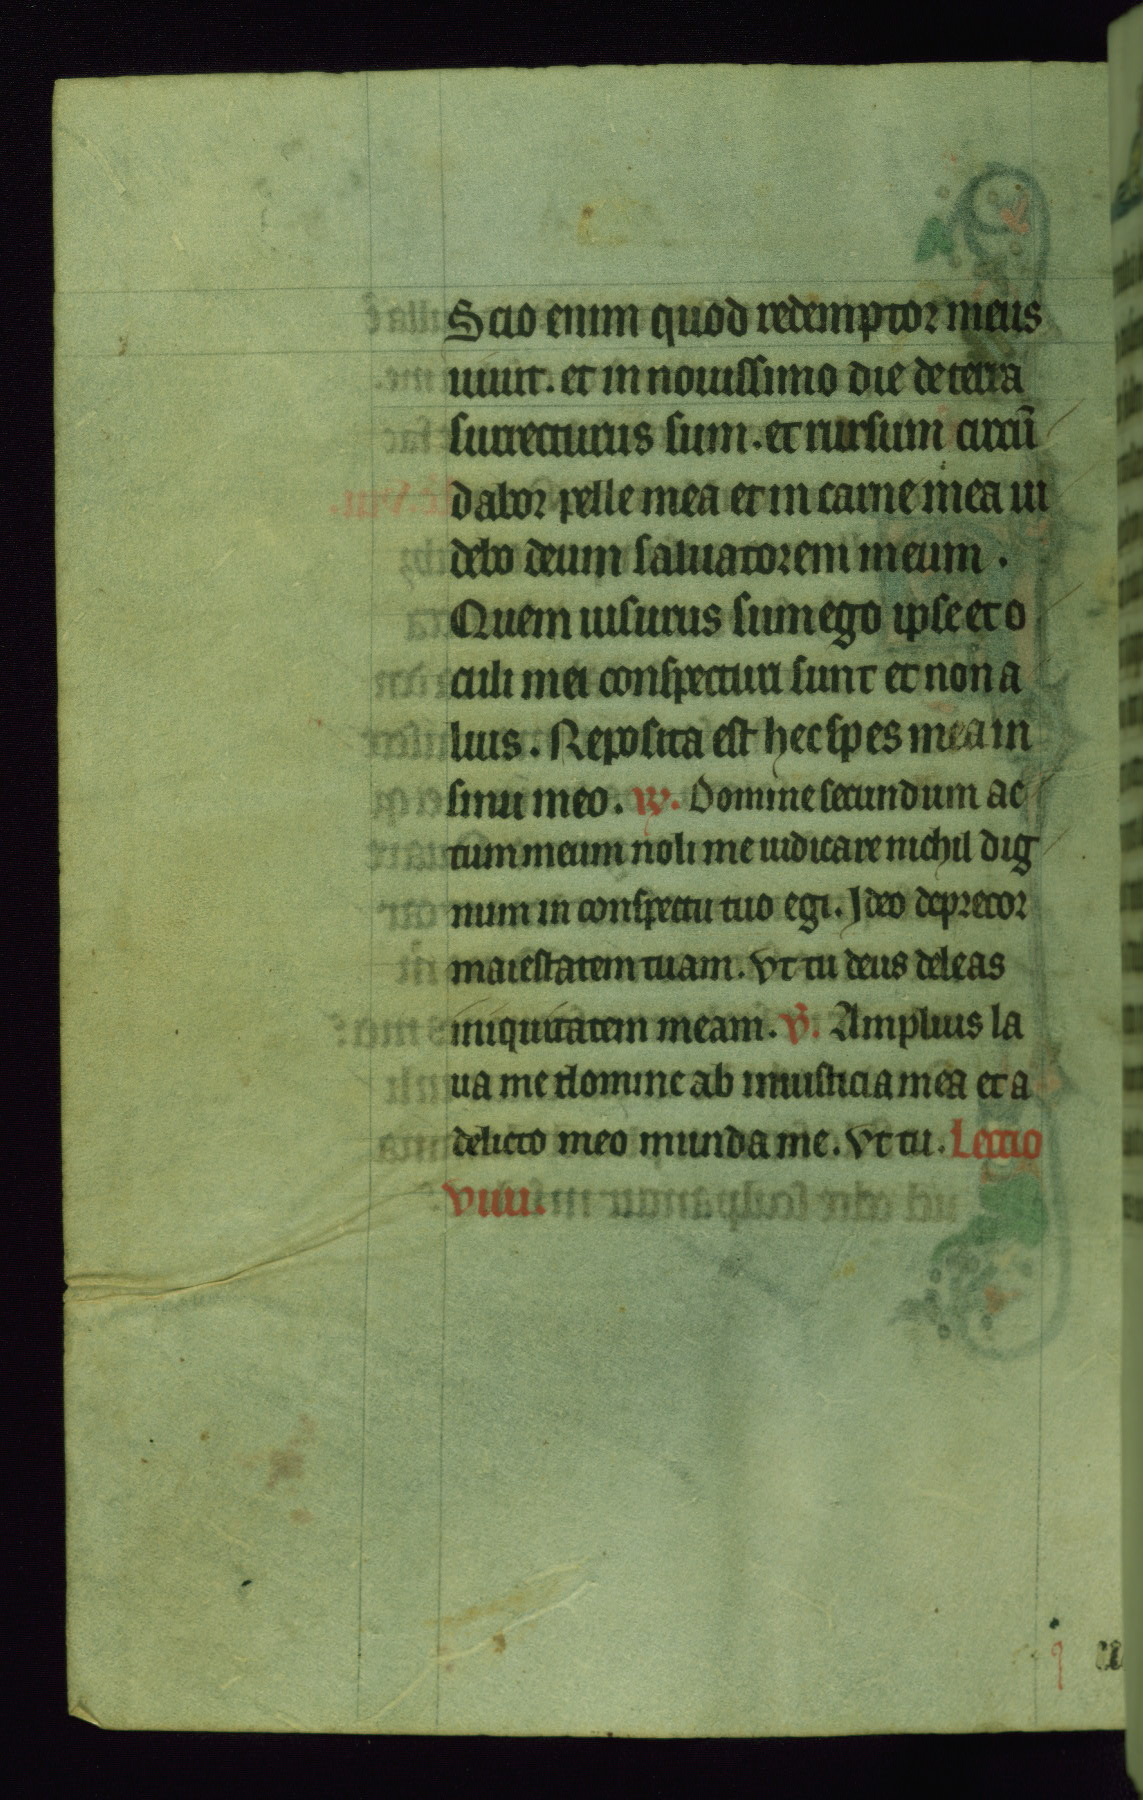 Scio enim quod redemptor meus
uiuit. et in nouissimo die de terra
surrecturus sum. et rursum circū
dabor pelle mea et in carne mea ui
debo deum saluatorem meum.
Quem uisurus sum ego ipse et o
culi mei conspecturi sunt et non a
lius. Reposita est hec spes mea in
sinu meo. R. Domine secundum ac
tum meum noli me iudicare nichil dig
num in conspectu tuo egi. Ideo deprecor
maiestatem tuam. vt tu deus deleas
iniquitatem meam. V. Amplius la
ua me domine ab iniusticia mea et a
delicto meo munda me. vt tu. Lectio
viiii.